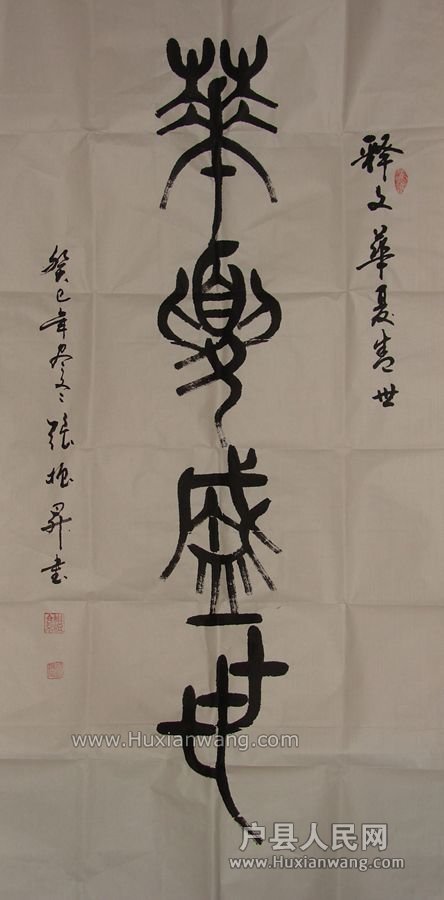 释文華夏盛世
華夏盛世
癸巳年冬張振昇書
www.Huxianwang.com
户县人民网
www.Huxianwang.com